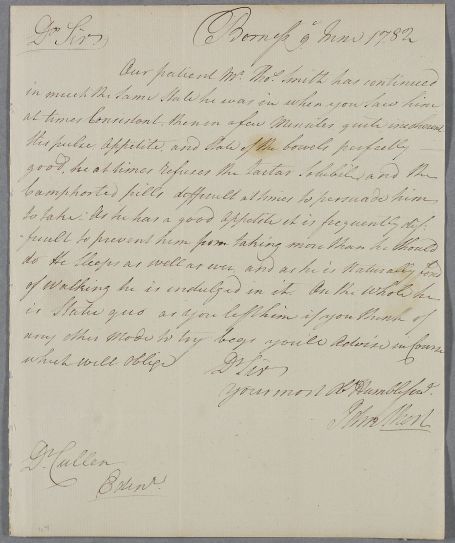 Dr Sir Borness 9 June 1782
Our patient Mr. Thos. Smith has continued
in much the same State he was in when you saw him
at times Consistent. then in a few Minutes quite incoherent
His pulse, Appetite, and State of the bowels perfectly
good, he at times refuses the Tartar Soluble and the
Camphorted pills difficult at times to persuade him
to take. As he has a good Appetite it is frequently dif-
ficult to prevent him from taking more than he should
do He Sleeps as well as ever, and as he is Naturally fond
of Walking he is endulged in it. On the Whole he
is State quo as you left him if you think of
any other Mode to try begs you'll advise in Course
which will Oblige Dr Sir
Your most Obt Humble Servt.
John
Dr Cullen
Edinr.